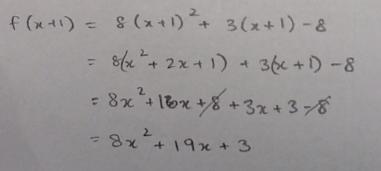 f(x+1) = 8(x+1)² + 3(x+1) - 8
= 8(x² + 2x + 1) + 3(x+1) - 8
= 8x² + 16x + 8 + 3x + 3 - 8
= 8x² + 19x + 3